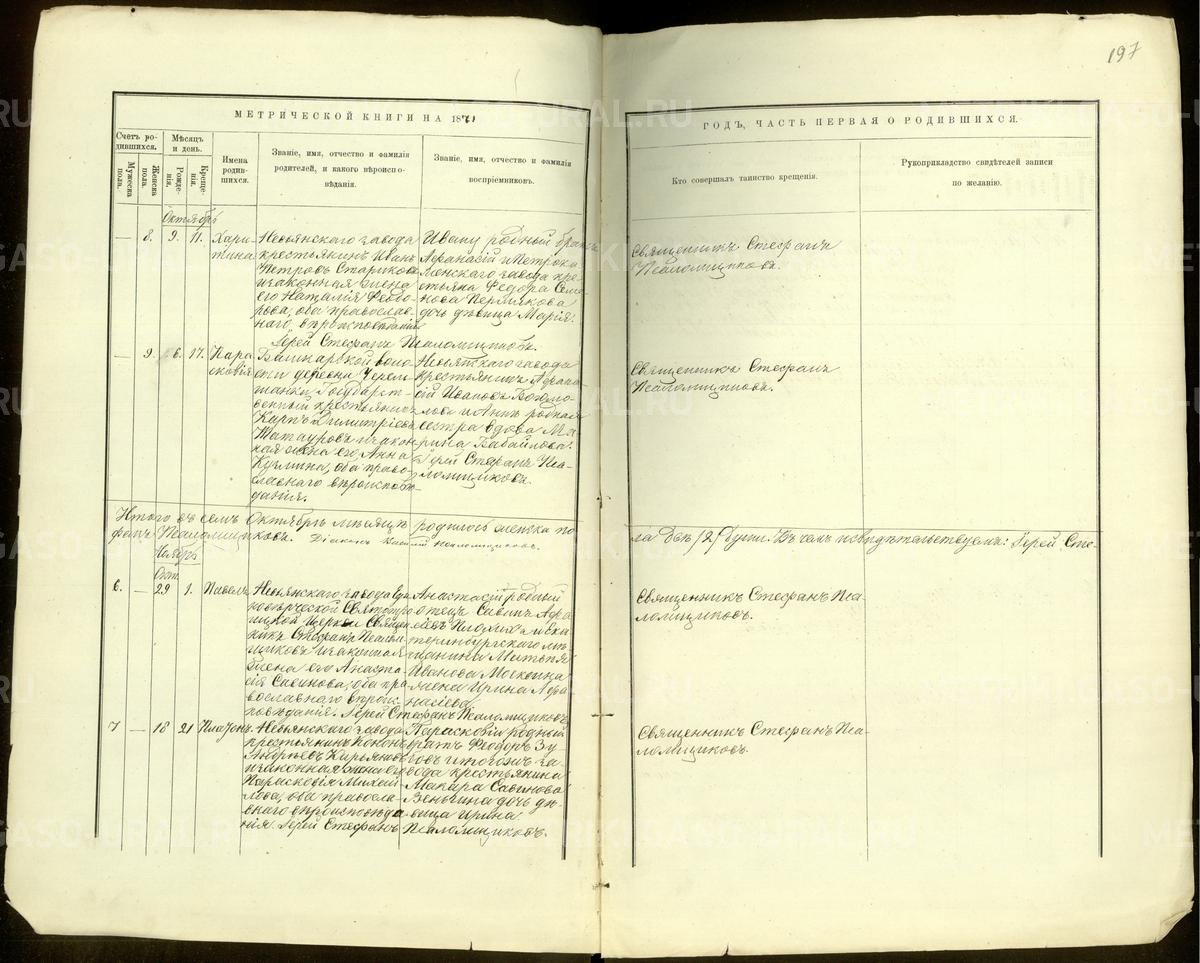 197
МЕТРИЧЕСКОЙ КНИГИ НА 1871
ГОДЪ, ЧАСТЬ ПЕРВАЯ О РОДИВШИХСЯ.
Счетъ ро-
дившихся.
Мѣсяцъ
и день.
Мужеска
пола.
Женска
пола.
Рожде-
нія.
Креще-
нія.
Имена
родив-
шихся.
Званіе, имя, отчество и фамилія
родителей, и какого вѣроиспо-
вѣданія.
Званіе, имя, отчество и фамилія
воспріемниковъ.
Кто совершалъ таинство крещенія.
Рукоприкладство свидѣтелей записи
по желанію.
Октябрь
— 8. 9. 11.
Хари-
тина
Невьянскаго завода
крестьянинъ Иванъ
Петровъ Стариковъ
и законная жена
его Наталія Ѳеодо-
рова, оба православ-
наго вѣроисповѣданія
Ивану родный братъ
Афанасій и Петрока-
менскаго завода кре-
стьяна Ѳедора Семе-
нова Пермякова
дочь дѣвица Марія.
Іерей Стефанъ Псаломщиковъ.
Священникъ Стефанъ
Псаломщиковъ.
— 9. 16. 17.
Пара-
сковія
волос-
ти деревни Черем-
шанки Государст-
венный крестьянинъ
Карпъ Димитріевъ
Татауровъ и закон-
ная жена его Анна
Кузмина, оба право-
славнаго вѣроисповѣ-
данія.
Невьянскаго завода
крестьянинъ Афана-
сій Ивановъ Богомо-
ловъ и Анны родная
сестра вдова Ма-
рина Бабайлова.
Іерей Стефанъ Пса-
ломщиковъ.
Священникъ Стефанъ
Псаломщиковъ.
Итого въ семъ Октябрѣ мѣсяцѣ родилось женска по-
ла двѣ /2/ души. Въ чемъ и свидѣтельствуемъ: Іерей Сте-
фанъ Псаломщиковъ. Діаконъ Василій Псаломщиковъ.
Ноябрь
Окт.
6. — 29 1. Павелъ
Невьянскаго завода Еди-
новѣрческой Святотро-
ицкой церкви Священ-
никъ Стефанъ Псалом-
щиковъ и законная
жена его Анаста-
сія Савинова, оба пра-
вославнаго вѣроис-
повѣданія.
Анастасіи родный
отецъ Савинъ Афа-
и Ека-
теринбургскаго мѣ-
щанина Матвѣя
Иванова Москвина
жена Ирина Афа-
насіева.
Іерей Стефанъ Псаломщиковъ
Священникъ Стефанъ Пса-
ломщиковъ.
7 — 18 21 Платонъ.
Невьянскаго завода
крестьянинъ Кононъ
Андреевъ Кирьяновъ
и законная жена его
Параскевія Михай-
лова, оба правосла-
внаго вѣроисповѣда-
нія.
Параскевіи родный
братъ Ѳеодоръ Зу-
бовъ и тогожъ за-
вода крестьянина
Макара Савинова
дочь дѣ-
вица Ирина
Іерей Стефанъ Псаломщиковъ.
Священникъ Стефанъ Пса-
ломщиковъ.